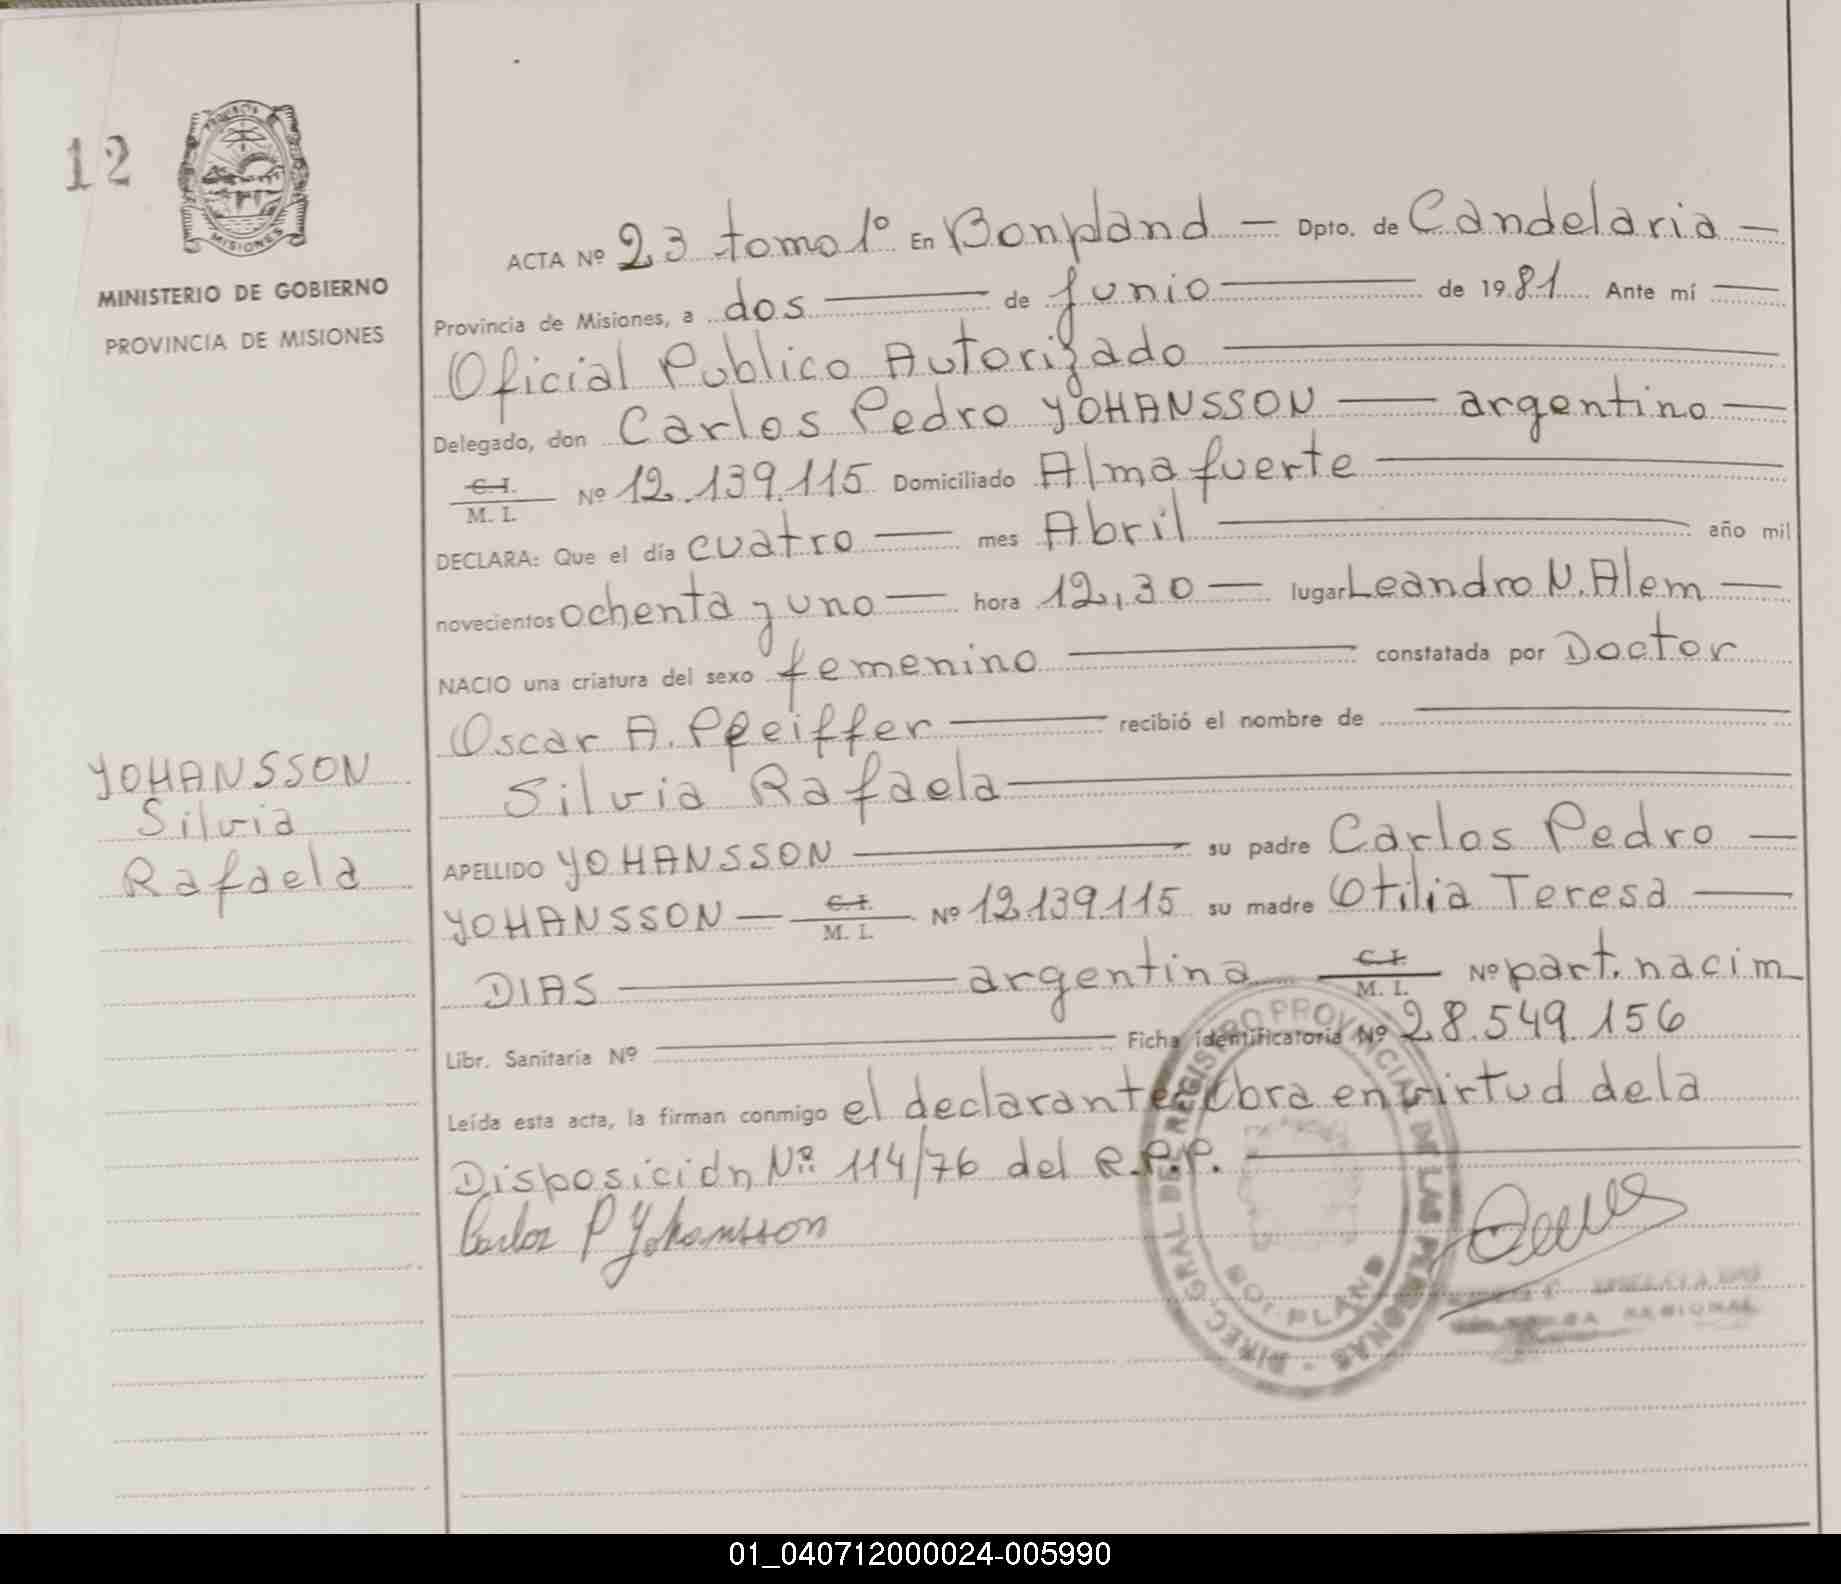 12
PROVINCIA
MISIONES
MINISTERIO DE GOBIERNO
PROVINCIA DE MISIONES
YOHANSSON
Silvia
Rafaela
ACTA Nº 23 tomo 1º En Bonpland — Dpto. de Candelaria —
Provincia de Misiones, a dos — de Junio — de 1981 Ante mí —
Oficial Publico Autorizado —
Delegado, don Carlos Pedro YOHANSSON — argentino —
C.I. / M. I. Nº 12.139.115 Domiciliado Almafuerte —
DECLARA: Que el día cuatro — mes Abril — año mil
novecientos ochenta y uno — hora 12,30 — lugar Leandro N. Alem —
NACIO una criatura del sexo femenino — constatada por Doctor
Oscar A. Pfeiffer — recibió el nombre de —
Silvia Rafaela —
APELLIDO YOHANSSON — su padre Carlos Pedro —
YOHANSSON — C.I. / M. I. Nº 12.139.115 su madre Otilia Teresa —
DIAS — argentina C.I. / M. I. Nº part. nacim
Libr. Sanitaria Nº — Ficha identificatoria Nº 28.549.156
Leída esta acta, la firman conmigo el declarante Obra en virtud de la
Disposición Nº 114/76 del R.P.P. —
Carlos P Yohansson
DIREC. GRAL DEL REGISTRO PROVINCIAL DE LAS PERSONAS
BONPLAND
REGIONAL
01_040712000024-005990